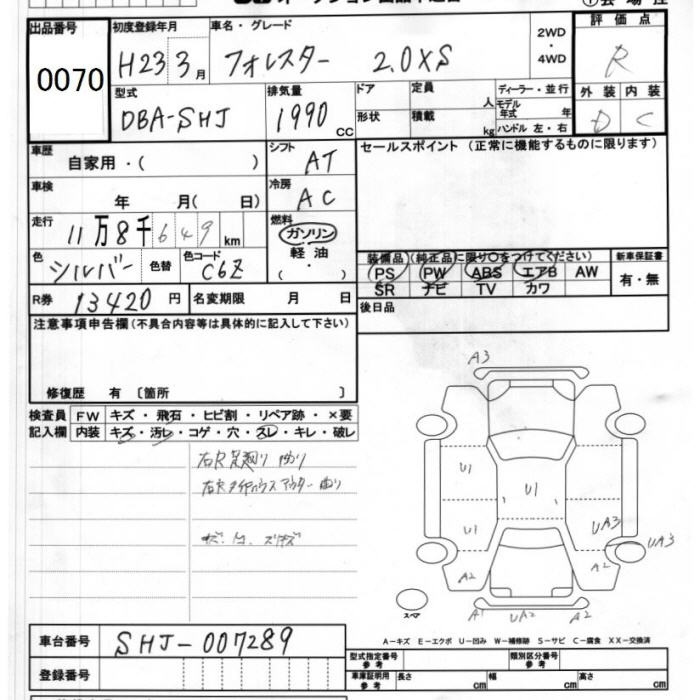 出品番号
0070
初度登録年月
H23 3月
車名・グレード
フォレスター 2.0XS
2WD
・
4WD
評価点
R
外装 内装
D C
型式
DBA-SHJ
排気量
1990 CC
ドア
形状
定員
人
積載
kg
ディーラー・並行
モデル
年式 年
ハンドル 左・右
車歴
自家用・( )
シフト
AT
セールスポイント(正常に機能するものに限ります)
車検
年 月( 日)
冷房
AC
走行
11万8千649km
燃料
ガソリン
軽油
・
( )
色
シルバー
色替
色コード
C6Z
装備品(純正品)に限り○をつけてください)
PS PW ABS エアB AW
SR ナビ TV カワ
新車保証書
有・無
R券 13420円
名変期限 月 日
後日品
注意事項申告欄(不具合内容等は具体的に記入して下さい)
修復歴 有 〔箇所 〕
検査員
記入欄
FW キズ・飛石・ヒビ割・リペア跡・×要
内装 キズ・汚レ・コゲ・穴・スレ・キレ・破レ
A3
U1
U1
U1
UA3
UA3
A2
A2
A1
UA2
A2
スペア
A-キズ E-エクボ U-凹み W-補修跡 S-サビ C-腐食 XX-交換済
車台番号
SHJ-007289
登録番号
型式指定番号
参考
類別区分番号
参考
車庫証明用
参考
長さ cm
幅 cm
高さ cm